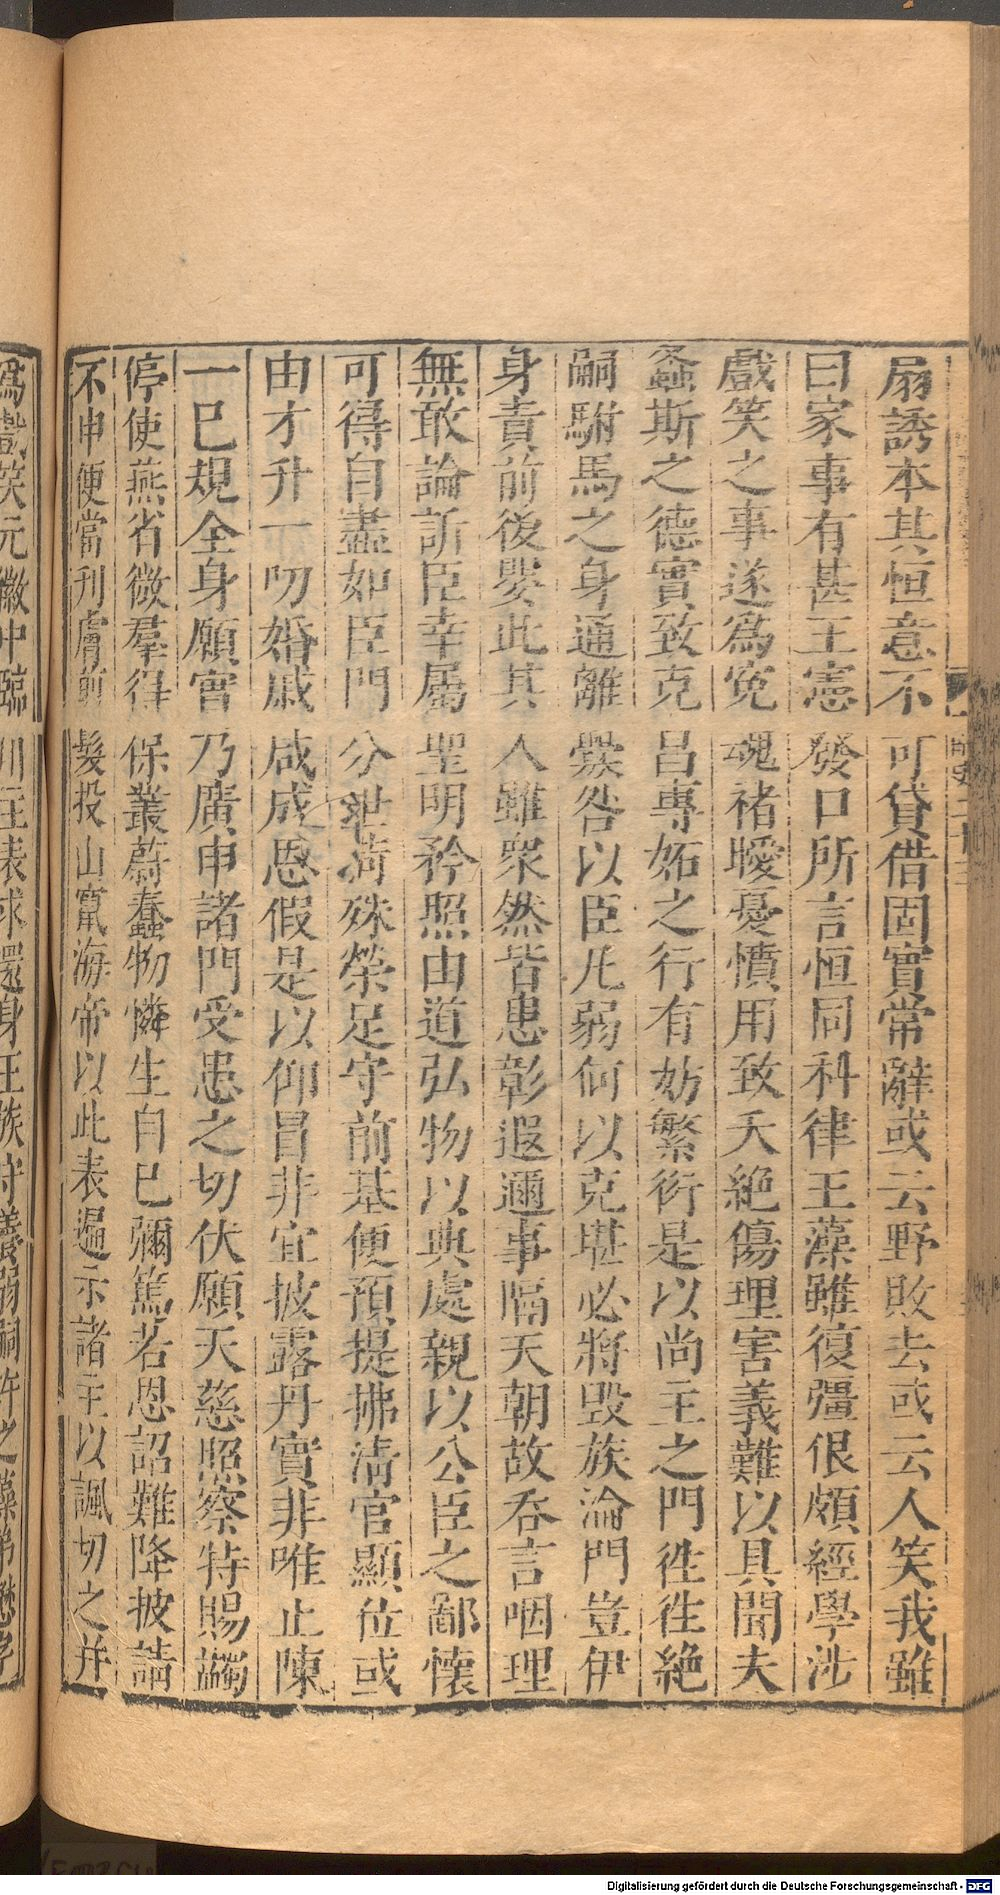 扇誘本其恒意不可貸借固實常辭或云野敗去或云人笑我雖
曰家事有甚王憲發口所言恒同科律王藻雖復彊佷頗經學涉
戲笑之事遂爲寃魂褚曖憂憤用致夭絶傷理害義難以具聞夫
螽斯之德實致克昌專妬之行有妨繁衍是以尚主之門徃徃絶
嗣駙馬之身通離釁咎以臣凡弱何以克堪必將毀族淪門豈伊
身責前後嬰此其人雖衆然皆患彰遐邇事隔天朝故吞言咽理
無敢論訴臣幸屬聖明矜照由道弘物以典處親以公臣之鄙懷
可得自盡如臣門分泄荷殊榮足守前基便預提拂淸官顯位或
由才升一叨婚戚咸成恩假是以仰冒非宜披露丹實非唯止陳
一巳規全身願實乃廣申諸門受患之切伏願天慈照察特賜蠲
停使燕省微羣得保叢蔚蠢物憐生自巳彌篤若恩詔難降披請
不申便當刋膚剪髮投山竄海帝以此表遍示諸主以諷切之并
爲戲笑元徽中臨川主表求還身王族守養弱嗣許之藻弟懋字
Digitalisierung gefördert durch die Deutsche Forschungsgemeinschaft - DFG